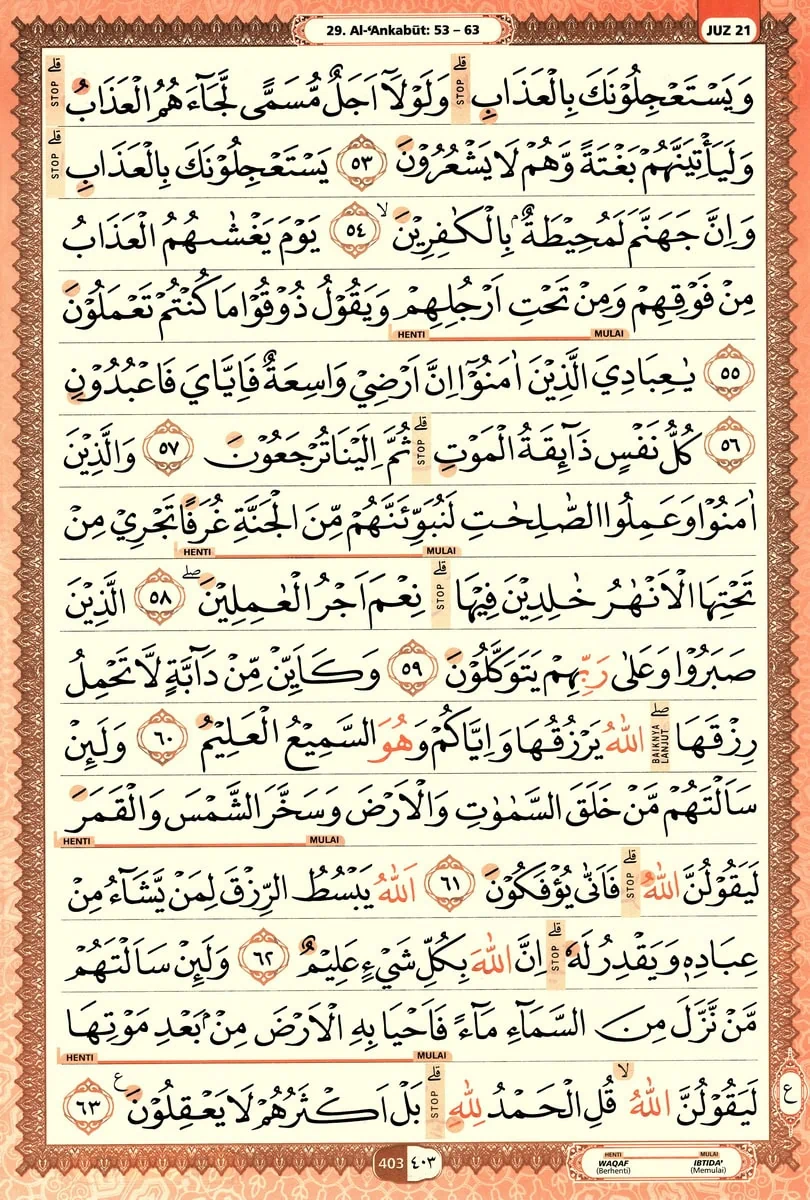 29. Al-‘Ankabūt: 53 – 63
JUZ 21
وَيَسْتَعْجِلُوْنَكَ بِالْعَذَابِۗ STOP وَلَوْلَآ اَجَلٌ مُّسَمًّى لَّجَاۤءَهُمُ الْعَذَابُۗ STOP
وَلَيَأْتِيَنَّهُمْ بَغْتَةً وَّهُمْ لَا يَشْعُرُوْنَ ٥٣ يَسْتَعْجِلُوْنَكَ بِالْعَذَابِۗ STOP
وَاِنَّ جَهَنَّمَ لَمُحِيْطَةٌ ۢ بِالْكٰفِرِيْنَۙ ٥٤ يَوْمَ يَغْشٰىهُمُ الْعَذَابُ
مِنْ فَوْقِهِمْ وَمِنْ تَحْتِ اَرْجُلِهِمْ وَيَقُوْلُ ذُوْقُوْا مَا كُنْتُمْ تَعْمَلُوْنَ
HENTI MULAI
٥٥ يٰعِبَادِيَ الَّذِيْنَ اٰمَنُوْٓا اِنَّ اَرْضِيْ وَاسِعَةٌ فَاِيَّايَ فَاعْبُدُوْنِ
٥٦ كُلُّ نَفْسٍ ذَاۤىِٕقَةُ الْمَوْتِۗ STOP ثُمَّ اِلَيْنَا تُرْجَعُوْنَ ٥٧ وَالَّذِيْنَ
اٰمَنُوْا وَعَمِلُوا الصّٰلِحٰتِ لَنُبَوِّئَنَّهُمْ مِّنَ الْجَنَّةِ غُرَفًا تَجْرِيْ مِنْ
HENTI MULAI
تَحْتِهَا الْاَنْهٰرُ خٰلِدِيْنَ فِيْهَاۗ STOP نِعْمَ اَجْرُ الْعٰمِلِيْنَۖ ٥٨ الَّذِيْنَ
صَبَرُوْا وَعَلٰى رَبِّهِمْ يَتَوَكَّلُوْنَ ٥٩ وَكَاَيِّنْ مِّنْ دَاۤبَّةٍ لَّا تَحْمِلُ
رِزْقَهَاۖ BAIKNYA LANJUT اللّٰهُ يَرْزُقُهَا وَاِيَّاكُمْ وَهُوَ السَّمِيْعُ الْعَلِيْمُ ٦٠ وَلَىِٕنْ
سَاَلْتَهُمْ مَّنْ خَلَقَ السَّمٰوٰتِ وَالْاَرْضَ وَسَخَّرَ الشَّمْسَ وَالْقَمَرَ
HENTI MULAI
لَيَقُوْلُنَّ اللّٰهُۗ STOP فَاَنّٰى يُؤْفَكُوْنَ ٦١ اَللّٰهُ يَبْسُطُ الرِّزْقَ لِمَنْ يَّشَاۤءُ مِنْ
عِبَادِهٖ وَيَقْدِرُ لَهٗۗ STOP اِنَّ اللّٰهَ بِكُلِّ شَيْءٍ عَلِيْمٌ ٦٢ وَلَىِٕنْ سَاَلْتَهُمْ
مَّنْ نَّزَّلَ مِنَ السَّمَاۤءِ مَاۤءً فَاَحْيَا بِهِ الْاَرْضَ مِنْۢ بَعْدِ مَوْتِهَا
HENTI MULAI
لَيَقُوْلُنَّ اللّٰهُۙ قُلِ الْحَمْدُ لِلّٰهِۗ STOP بَلْ اَكْثَرُهُمْ لَا يَعْقِلُوْنَࣖ ٦٣
ع
403 ٤٠٣
HENTI MULAI
WAQAF IBTIDA'
(Berhenti) (Memulai)